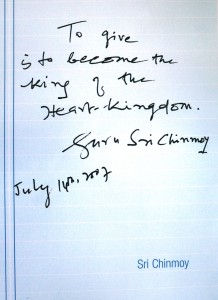 To give
is to become the
king of the
Heart-Kingdom.
Guru Sri Chinmoy
July 14th, 2007
Sri Chinmoy